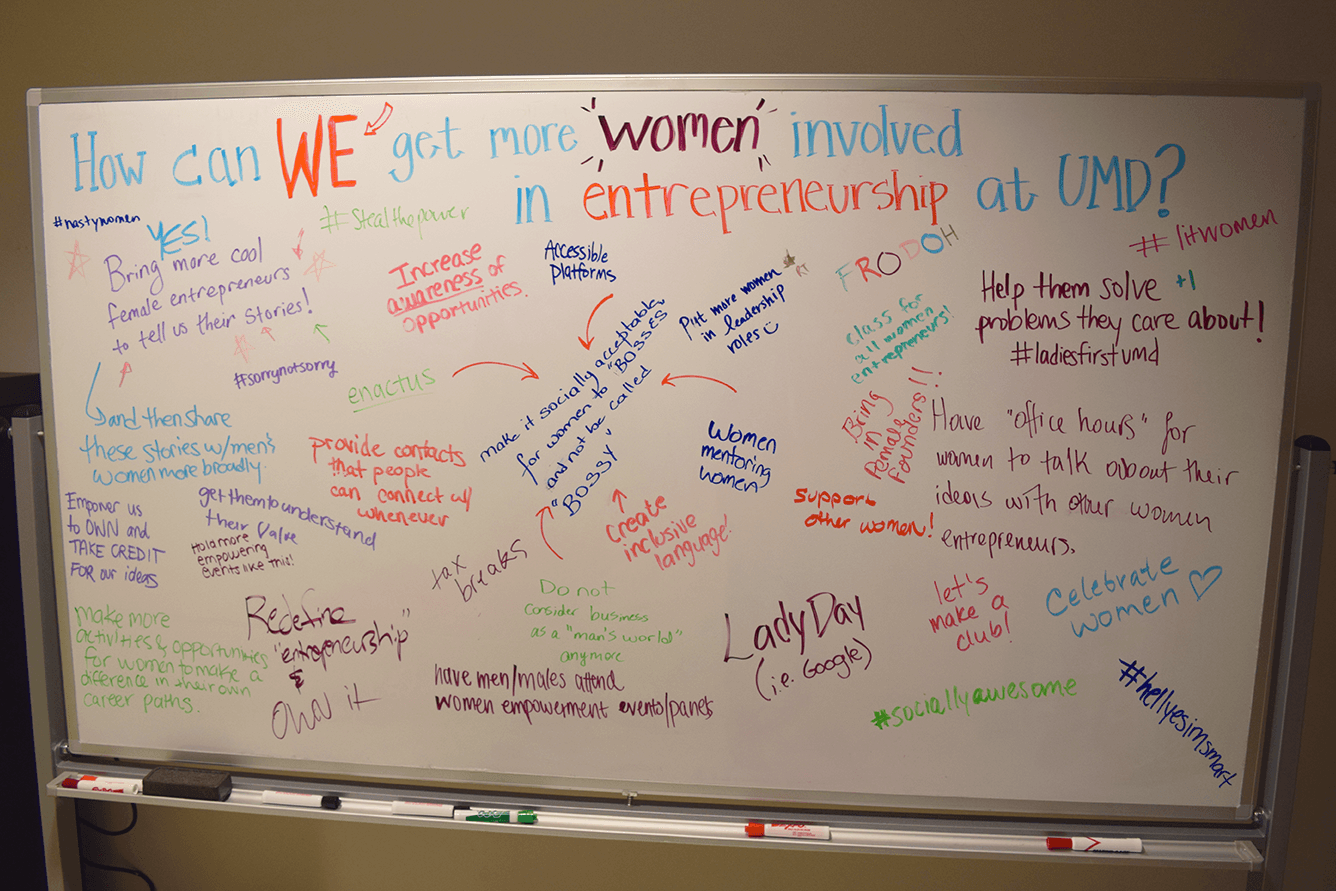 How can WE get more "women" involved
in entrepreneurship at UMD?
#nastywomen
YES!
Bring more cool
female entrepreneurs
to tell us their stories!
#Stealthepower
Increase
awareness of
opportunities.
Accessible
Platforms
Put more women
in leadership
roles
FRODOH
#litwomen
Help them solve +1
problems they care about!
#ladiesfirstumd
class for
all women
entrepreneurs!
#sorrynotsorry
enactus
make it socially acceptable
for women to "BOSSES
and not be called
"BOSSY"
Bring
in
Female
Founders!!
and then share
these stories w/men &
women more broadly.
provide contacts
that people
can connect w/
whenever
Women
mentoring
women
Have "office hours" for
women to talk about their
ideas with other women
entrepreneurs.
Support
other women!
Empower us
to OWN and
TAKE CREDIT
FOR our ideas
get them to understand
their value
Hold more
empowering
events like this!
Create
inclusive
language!
tax
breaks
Do not
consider business
as a "man's world"
anymore
make more
activities & opportunities
for women to make a
difference in their own
career paths.
Redefine
"entrepneurship"
&
OWN it
have men/males attend
women empowerment events/panels
Lady Day
(i.e. Google)
let's
make a
club!
Celebrate
women ♡
#sociallyawesome
#hellyesimsmart